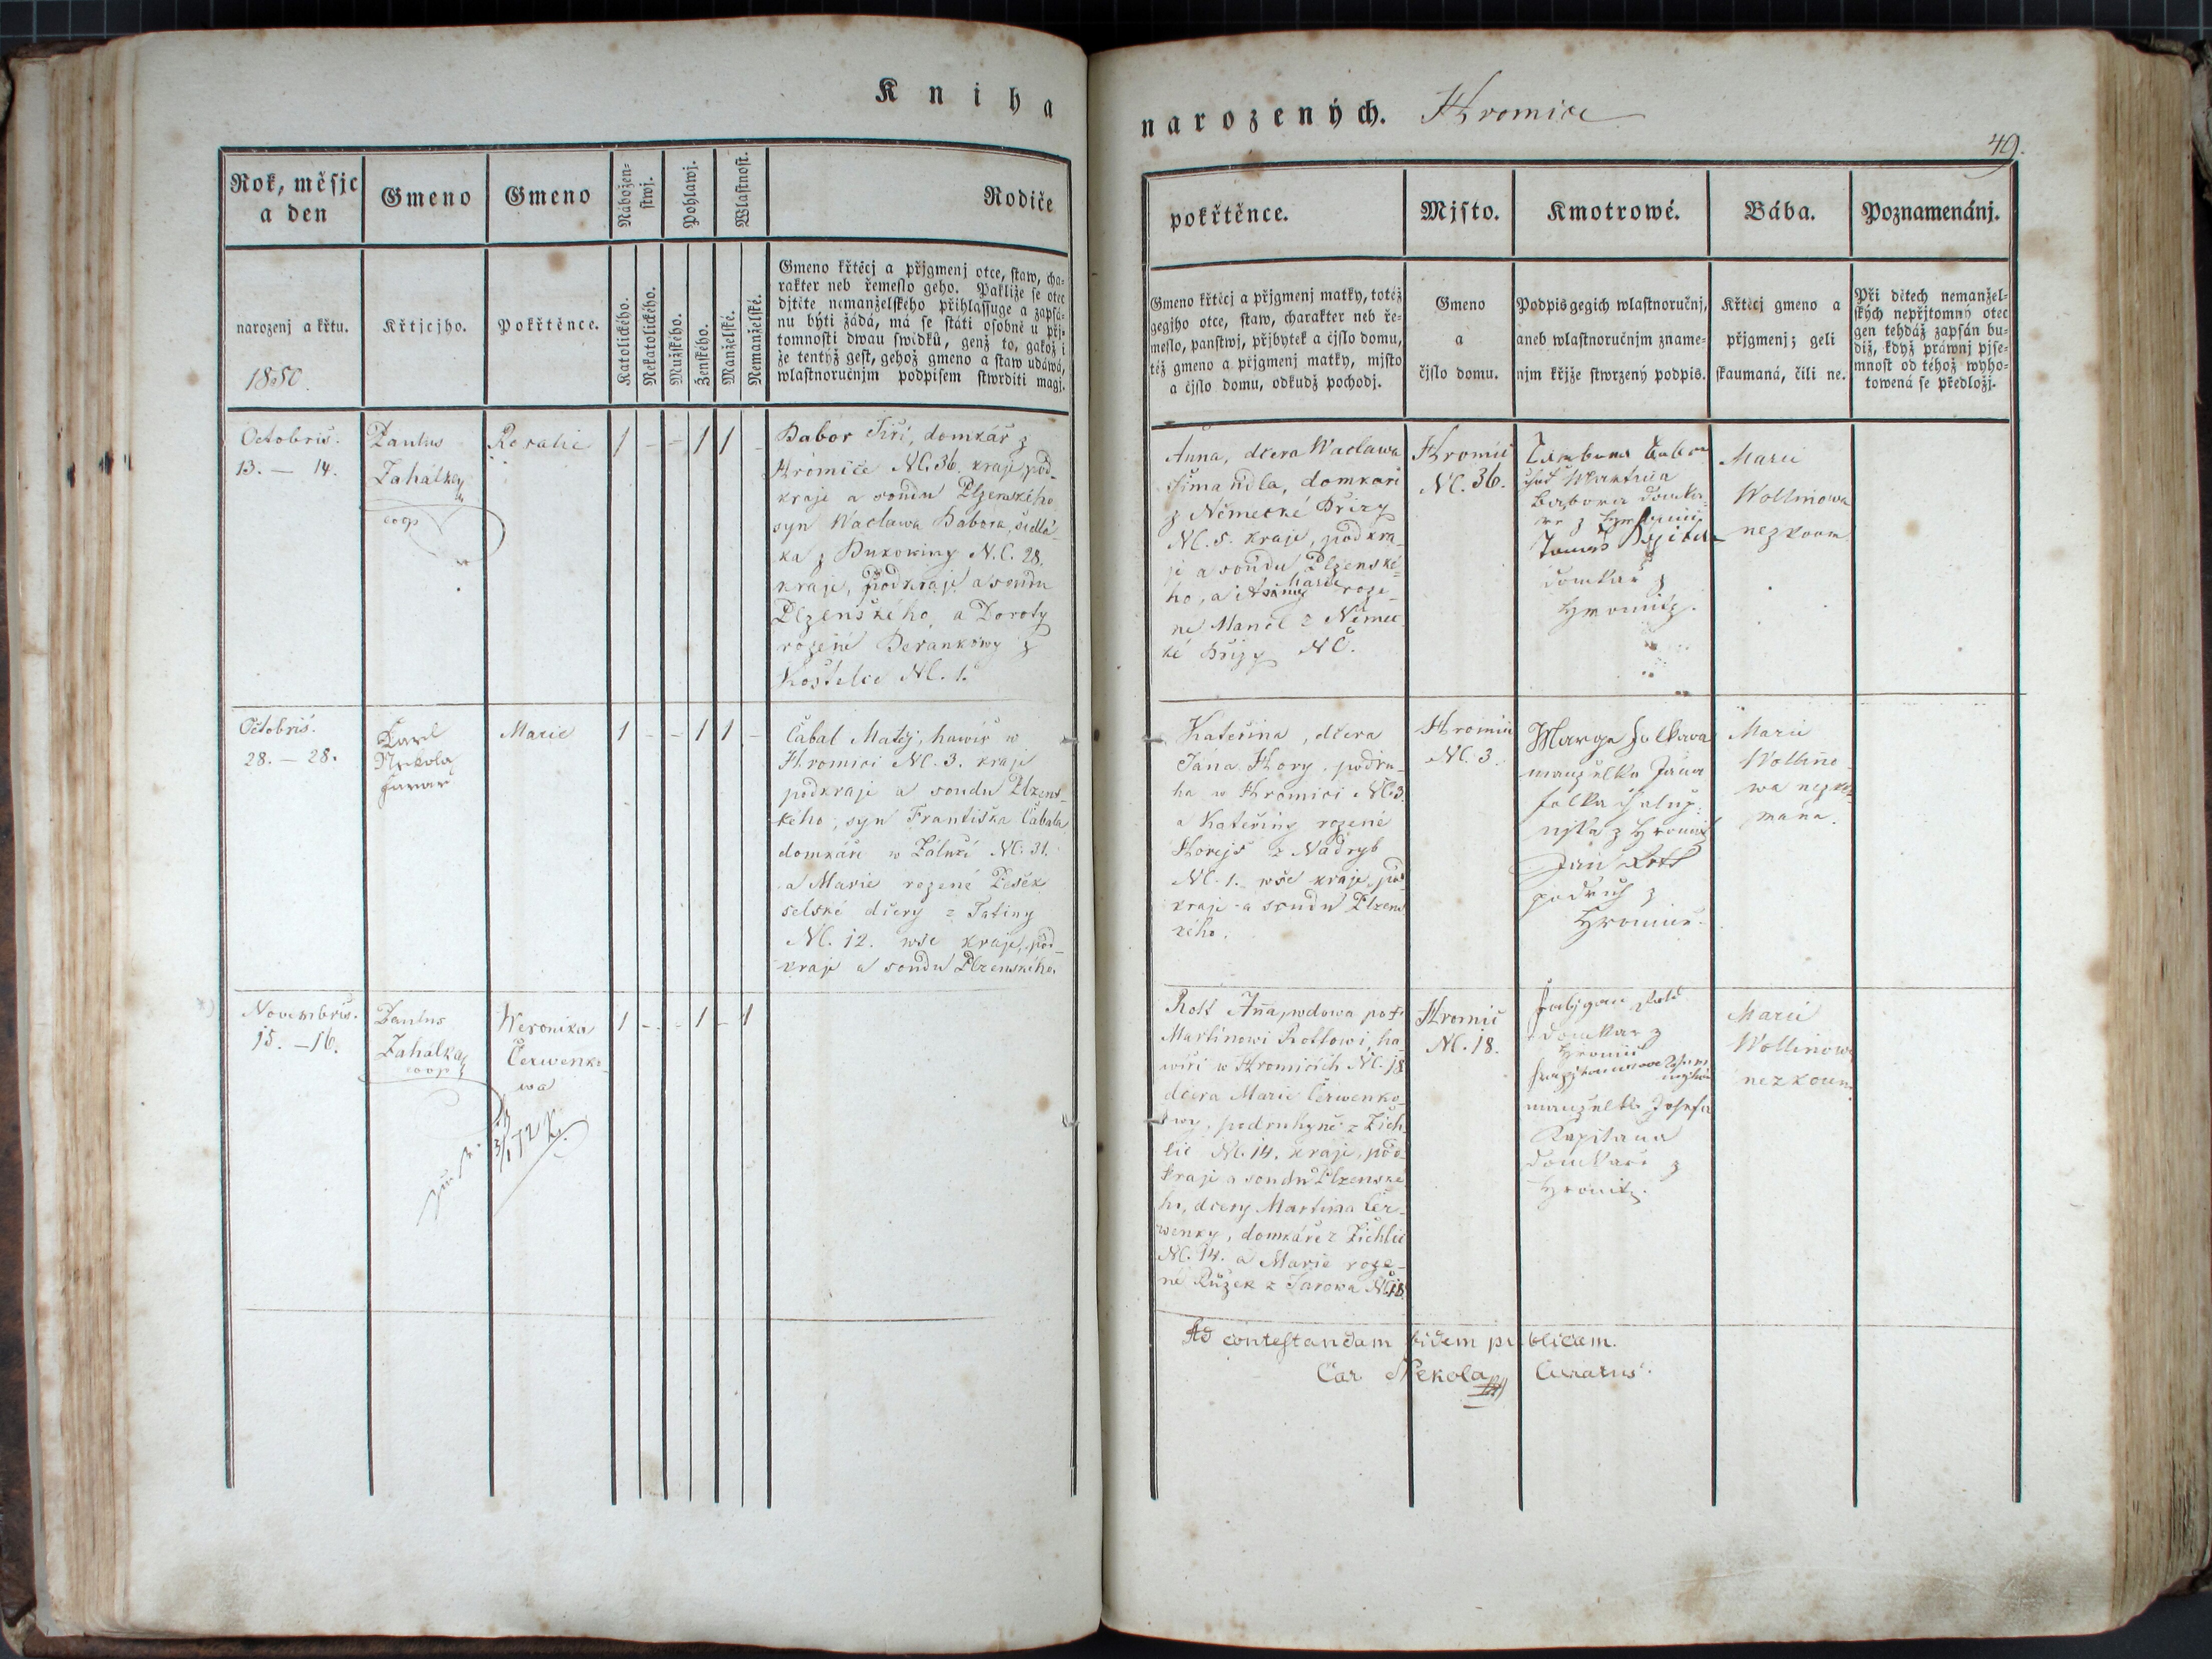 Kniha
narozených. Hromice
49.
Rok, měsjc
a den
Gmeno
Gmeno
Nábožen-
stwj.
Pohlawj.
Wlastnost.
Rodiče
narozenj a křtu.
1850.
Křtjcjho.
Pokřtěnce.
Katolického.
Nekatolického.
Mužského.
Ženského.
Manželské.
Nemanželské.
Gmeno křtěcj a přjgmenj otce, staw, cha-
rakter neb řemeslo geho. Pakliže se otec
djtěte nemanželského přihlassuge a zapsá-
nu býti žádá, má se státi osobně u přj-
tomnosti dwau swidků, genž to, gakož i
že tentýž gest, gehož gmeno a staw udáwá,
wlastnoručnjm podpisem stwrditi magj.
Octobris.
13. — 14.
Paulus
Zahálka
coop
Rosalie
1 - - 1 1 -
Babor Jiří, domkář z
Hromice NC. 36. kraje, pod-
kraje a soudu Plzenského
syn Waclawa Babora, sedlá-
ka z Bukowiny N.C. 28.
kraje, podkraje a soudu
Plzenského, a Doroty
rozené Berankowy z
Kostelce NC. 1.
Octobris.
28. — 28.
Karel
Nekola
farar
Marie
1 - - 1 1 -
Čabal Matěj, hawíř w
Hromici NC. 3. kraje
podkraje a soudu Plzens-
kého, syn Františka Čabala
domkáře w Zálužì NC. 31.
a Marie rozené Pešek
selské dcery z Tatiny
NC. 12. wše kraje, pod-
kraje a soudu Plzenského.
Novembris.
15. — 16.
Paulus
Zahálka
coop
Weronika
Čerwenko-
wa
1 - - 1 - 1
pokřtěnce.
Mjsto.
Kmotrowé.
Bába.
Poznamenánj.
Gmeno křtěcj a přjgmenj matky, totéž
gegjho otce, staw, charakter neb ře-
meslo, panstwj, přjbytek a čjslo domu,
též gmeno a přjgmenj matky, mjsto
a čjslo domu, odkudž pochodj.
Gmeno
a
čjslo domu.
Podpis gegich wlastnoručnj,
aneb wlastnoručnjm zname-
njm křjže stwrzený podpis.
Křtěcj gmeno a
přjgmenj; geli
skaumaná, čili ne.
Při dětech nemanžel-
ských nepřjtomný otec
gen tehdáž zapsán bu-
diž, když práwnj pjse-
mnost od téhož wyho-
towená se předložj.
Anna, dcera Waclawa
Šimandla, domkáře
z Německé Břizy
NC. 5. kraje, podkra-
je a soudu Plzenské-
ho, a Marie roze-
né Mandl z Němec-
ké Břizy NC.
Hromic
NC. 36.
Babora domka-
domkař z
Hromitz.
Marie
Wollinowa
nezkoum
Kateřina, dcera
Jána Hory, podru-
ha w Hromici NC. 3.
a Kateřiny rozené
Horejš z Nadryb
NC. 1. wše kraje, pod-
kraje a soudu Plzens-
kého.
Hromic
NC. 3.
manželka Jana
z Hromic
Jan Rott
podruh z
Hromic.
Marie
Wollino-
wa nezko-
mana.
Rott Anna, wdowa po †
Martinowi Rottowi, ha-
wíři w Hromicích NC. 18
dcera Marie Čerwenko-
wy, podruhyně z Žich-
lic NC. 14. kraje, pod-
kraje a soudu Plzenské-
ho, dcery Martina Čer-
wenky, domkáře z Žichlic
NC. 14. a Marie roze-
né Růžek z Jarowa NC. 18.
Hromic
NC. 18.
domkař z
Hromic
manželka Josefa
Kapitana
domkaře z
Hromitz.
Marie
Wollinowa
nezkoum.
Ad contestandam fidem publicam.
Car Nekola Curatus.